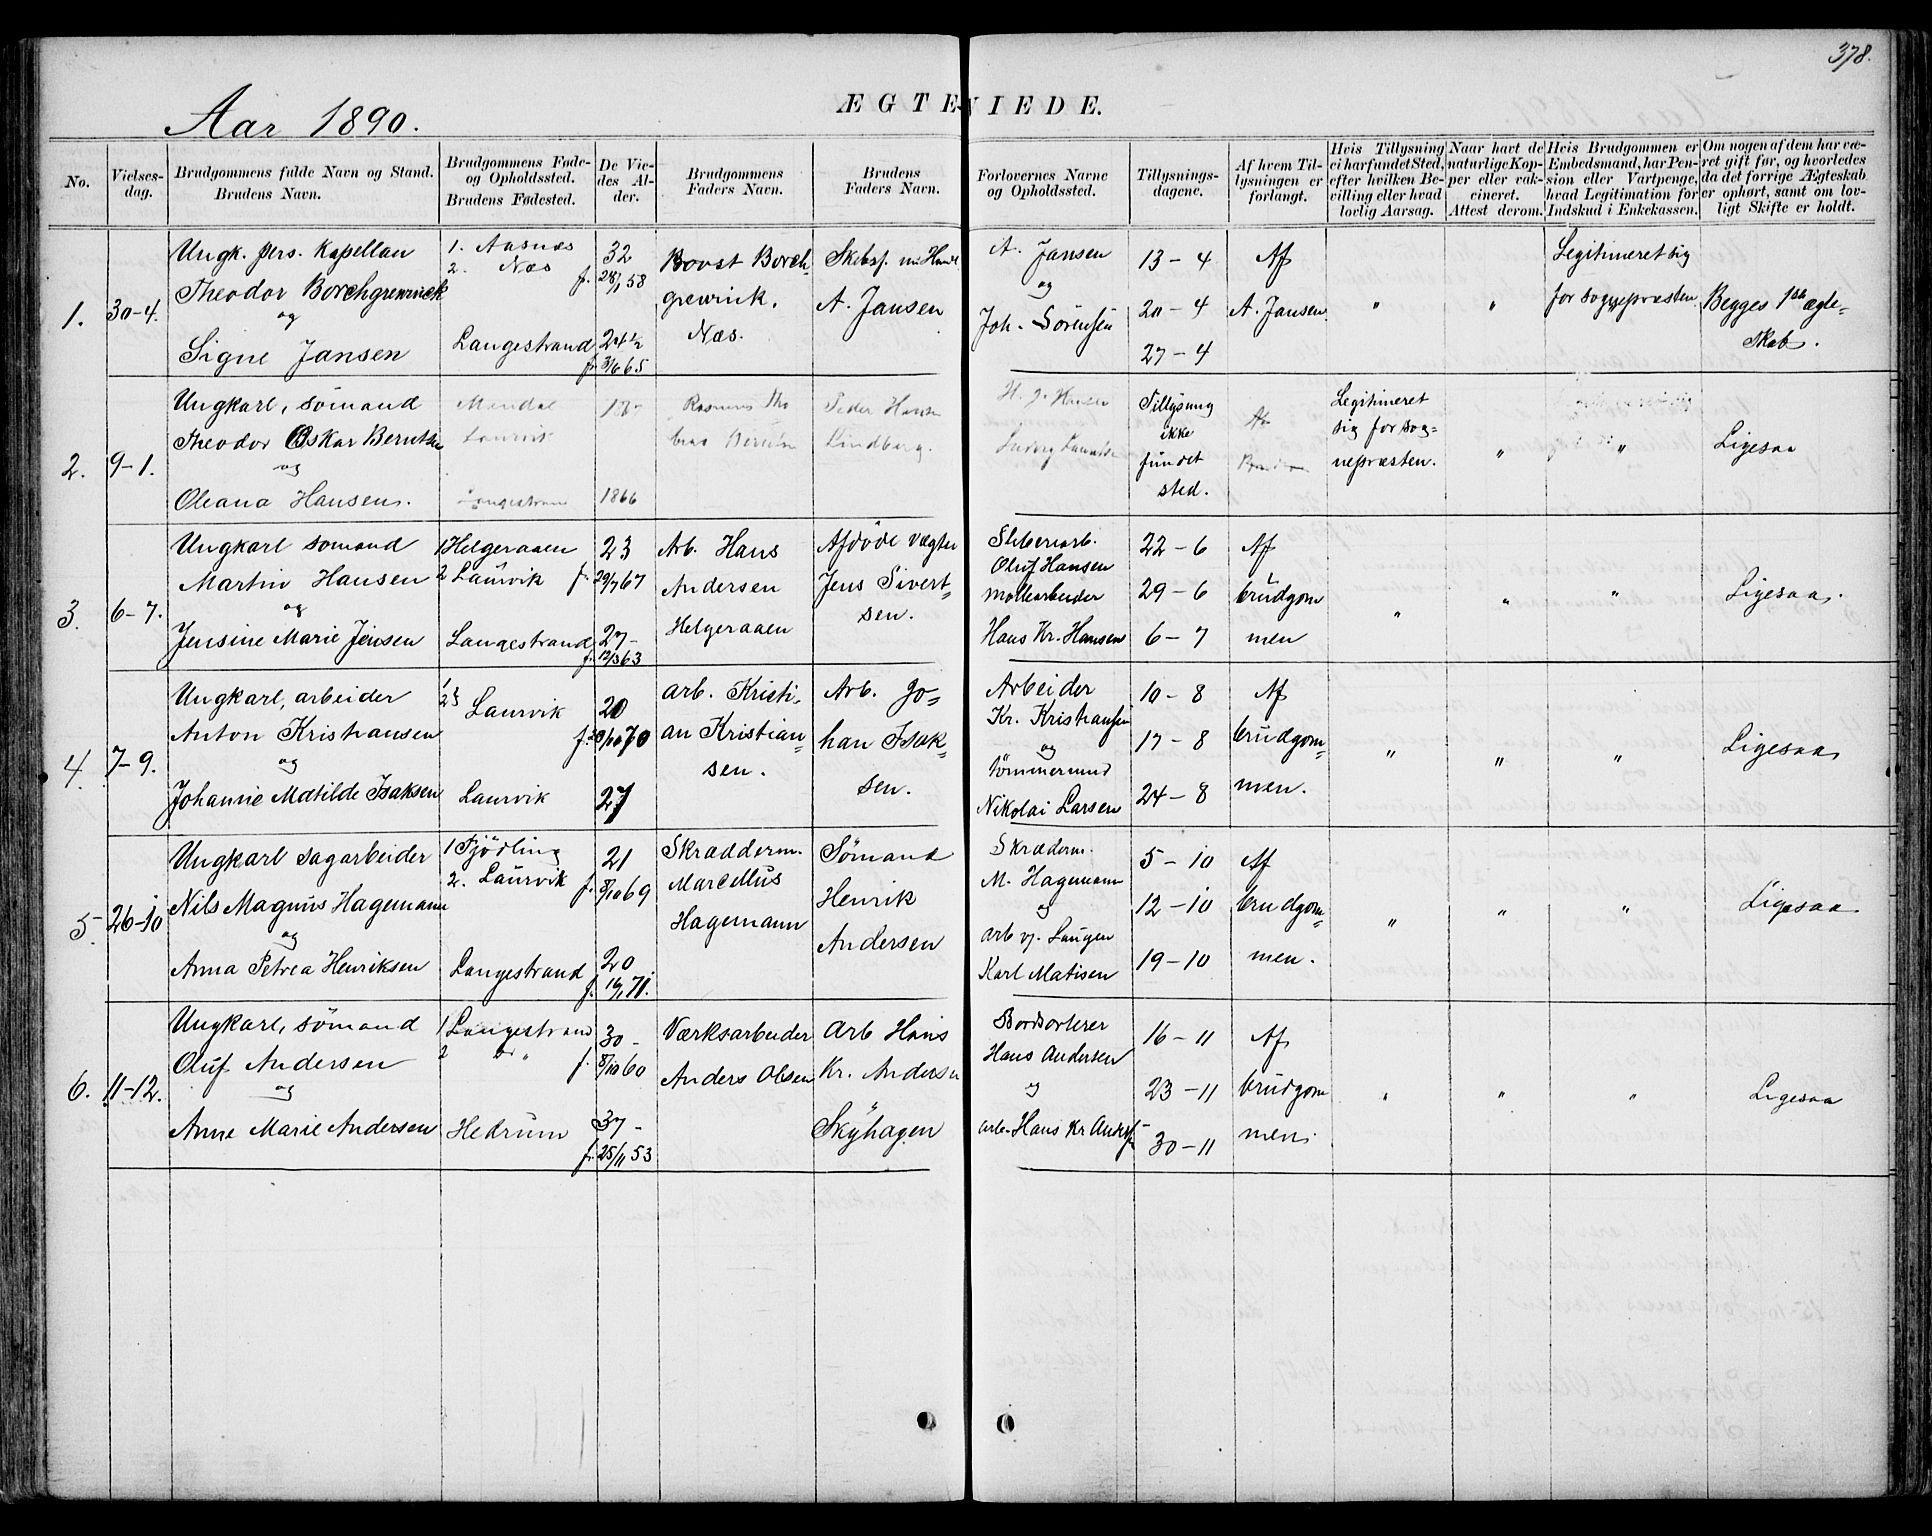 378.
Aar 1890.
ÆGTEVIEDE.
No.
Vielses-
dag.
Brudgommens fulde Navn og Stand.
Brudens Navn.
Brudgommens Føde-
og Opholdssted.
Brudens Fødested.
De Vie-
des Al-
der.
Brudgommens
Faders Navn.
Brudens
Faders Navn.
Forlovernes Navne
og Opholdssted.
Tillysnings-
dagene.
Af hvem Til-
lysningen er
forlangt.
Hvis Tillysning
ei har fundet Sted,
efter hvilken Be-
villing eller hvad
lovlig Aarsag.
Naar havt de
naturlige Kop-
per eller vak-
cineret.
Attest derom.
Hvis Brudgommen er
Embedsmand, har Pen-
sion eller Vartpenge,
hvad Legitimation for
Indskud i Enkekassen.
Om nogen af dem har væ-
ret gift før, og hvorledes
da det forrige Ægteskab
er ophørt, samt om lov-
ligt Skifte er holdt.
1.
30-4.
Ungk. pers. Kapellan
Theodor Borchgrewinck
og
Signe Jansen
1. Aasnæs
2. Næs
Langestrand
32
f. 28/1 58
24 1/2
f. 3/6 65
Borch-
grewink.
Næs.
A. Jansen
A. Jansen
og
Joh. Sörensen
13-4
20-4
27-4
Af
A. Jansen.
"
"
Legitimeret sig
for sognepræsten.
Begges 1ste ægte-
skab.
2.
9-1.
Ungkarl, sømand
Theodor Oskar Berntsen
og
Oleana Hansen.
Mandal
Laurvik
Langestrand
1866
Rasmus
Peder Hansen
Lindberg.
Tillysning
ikke
fundet
sted.
Af
Legitimeret
sig for sog-
nepræsten.
"
"
Ligesaa
3.
6-7.
Ungkarl sømand
Martin Hansen
og
Jensine Marie Jensen
1 Helgeraaen
2 Laurvik
Langestrand
23
f. 29/7 67
27-
f. 12/3 63
Arb. Hans
Andersen
Helgeraaen
Afdöde vægter
Jens Sivert-
sen.
Sliberiarb.
Oluf Hansen
møllearbeider
Hans Kr. Hansen
22-6
29-6
6-7
Af
brudgom
men
"
"
"
Ligesaa.
4.
7-9.
Ungkarl, arbeider
Anton Kristiansen
og
Johanne Matilde Isaksen
1
2 } Laurvik
Laurvik
20
70
27
arb. Kristi-
an Kristian-
sen.
Arb. Jo-
han Isak-
sen.
Arbeider
Kr. Kristiansen
og
tømmermand
Nikolai Larsen
10-8
17-8
24-8
Af
brudgom-
men.
"
"
"
Ligesaa
5.
26-10
Ungkarl sagarbeider
Nils Magnus Hagemann
og
Anna Petrea Henriksen
1 Tjödling
2. Laurvik
Langestrand
21
f. 8/10 69
20
f. 16/1 71.
Skrædderm.
Marcellus
Hagemann
Sömand
Henrik
Andersen
Skræderm.
M. Hagemann
og
arb v. Laugen
Karl Matisen
5-10
12-10
19-10
Af
brudgom-
men.
"
"
"
Ligesaa
6.
11-12.
Ungkarl, sömand
Oluf Andersen
og
Anne Marie Andersen
1 Langestrand
2 do "
Hedrum
30-
f. 8/10 60
37-
f. 25/11 53
Værksarbeider
Anders Olsen
Arb Hans
Kr. Andersen
Skÿhagen
Bordsorterer
Hans Andersen
og
arb. Hans Kr Anders
16-11
23-11
30-11
Af
brudgom
men.
"
"
"
Ligesaa